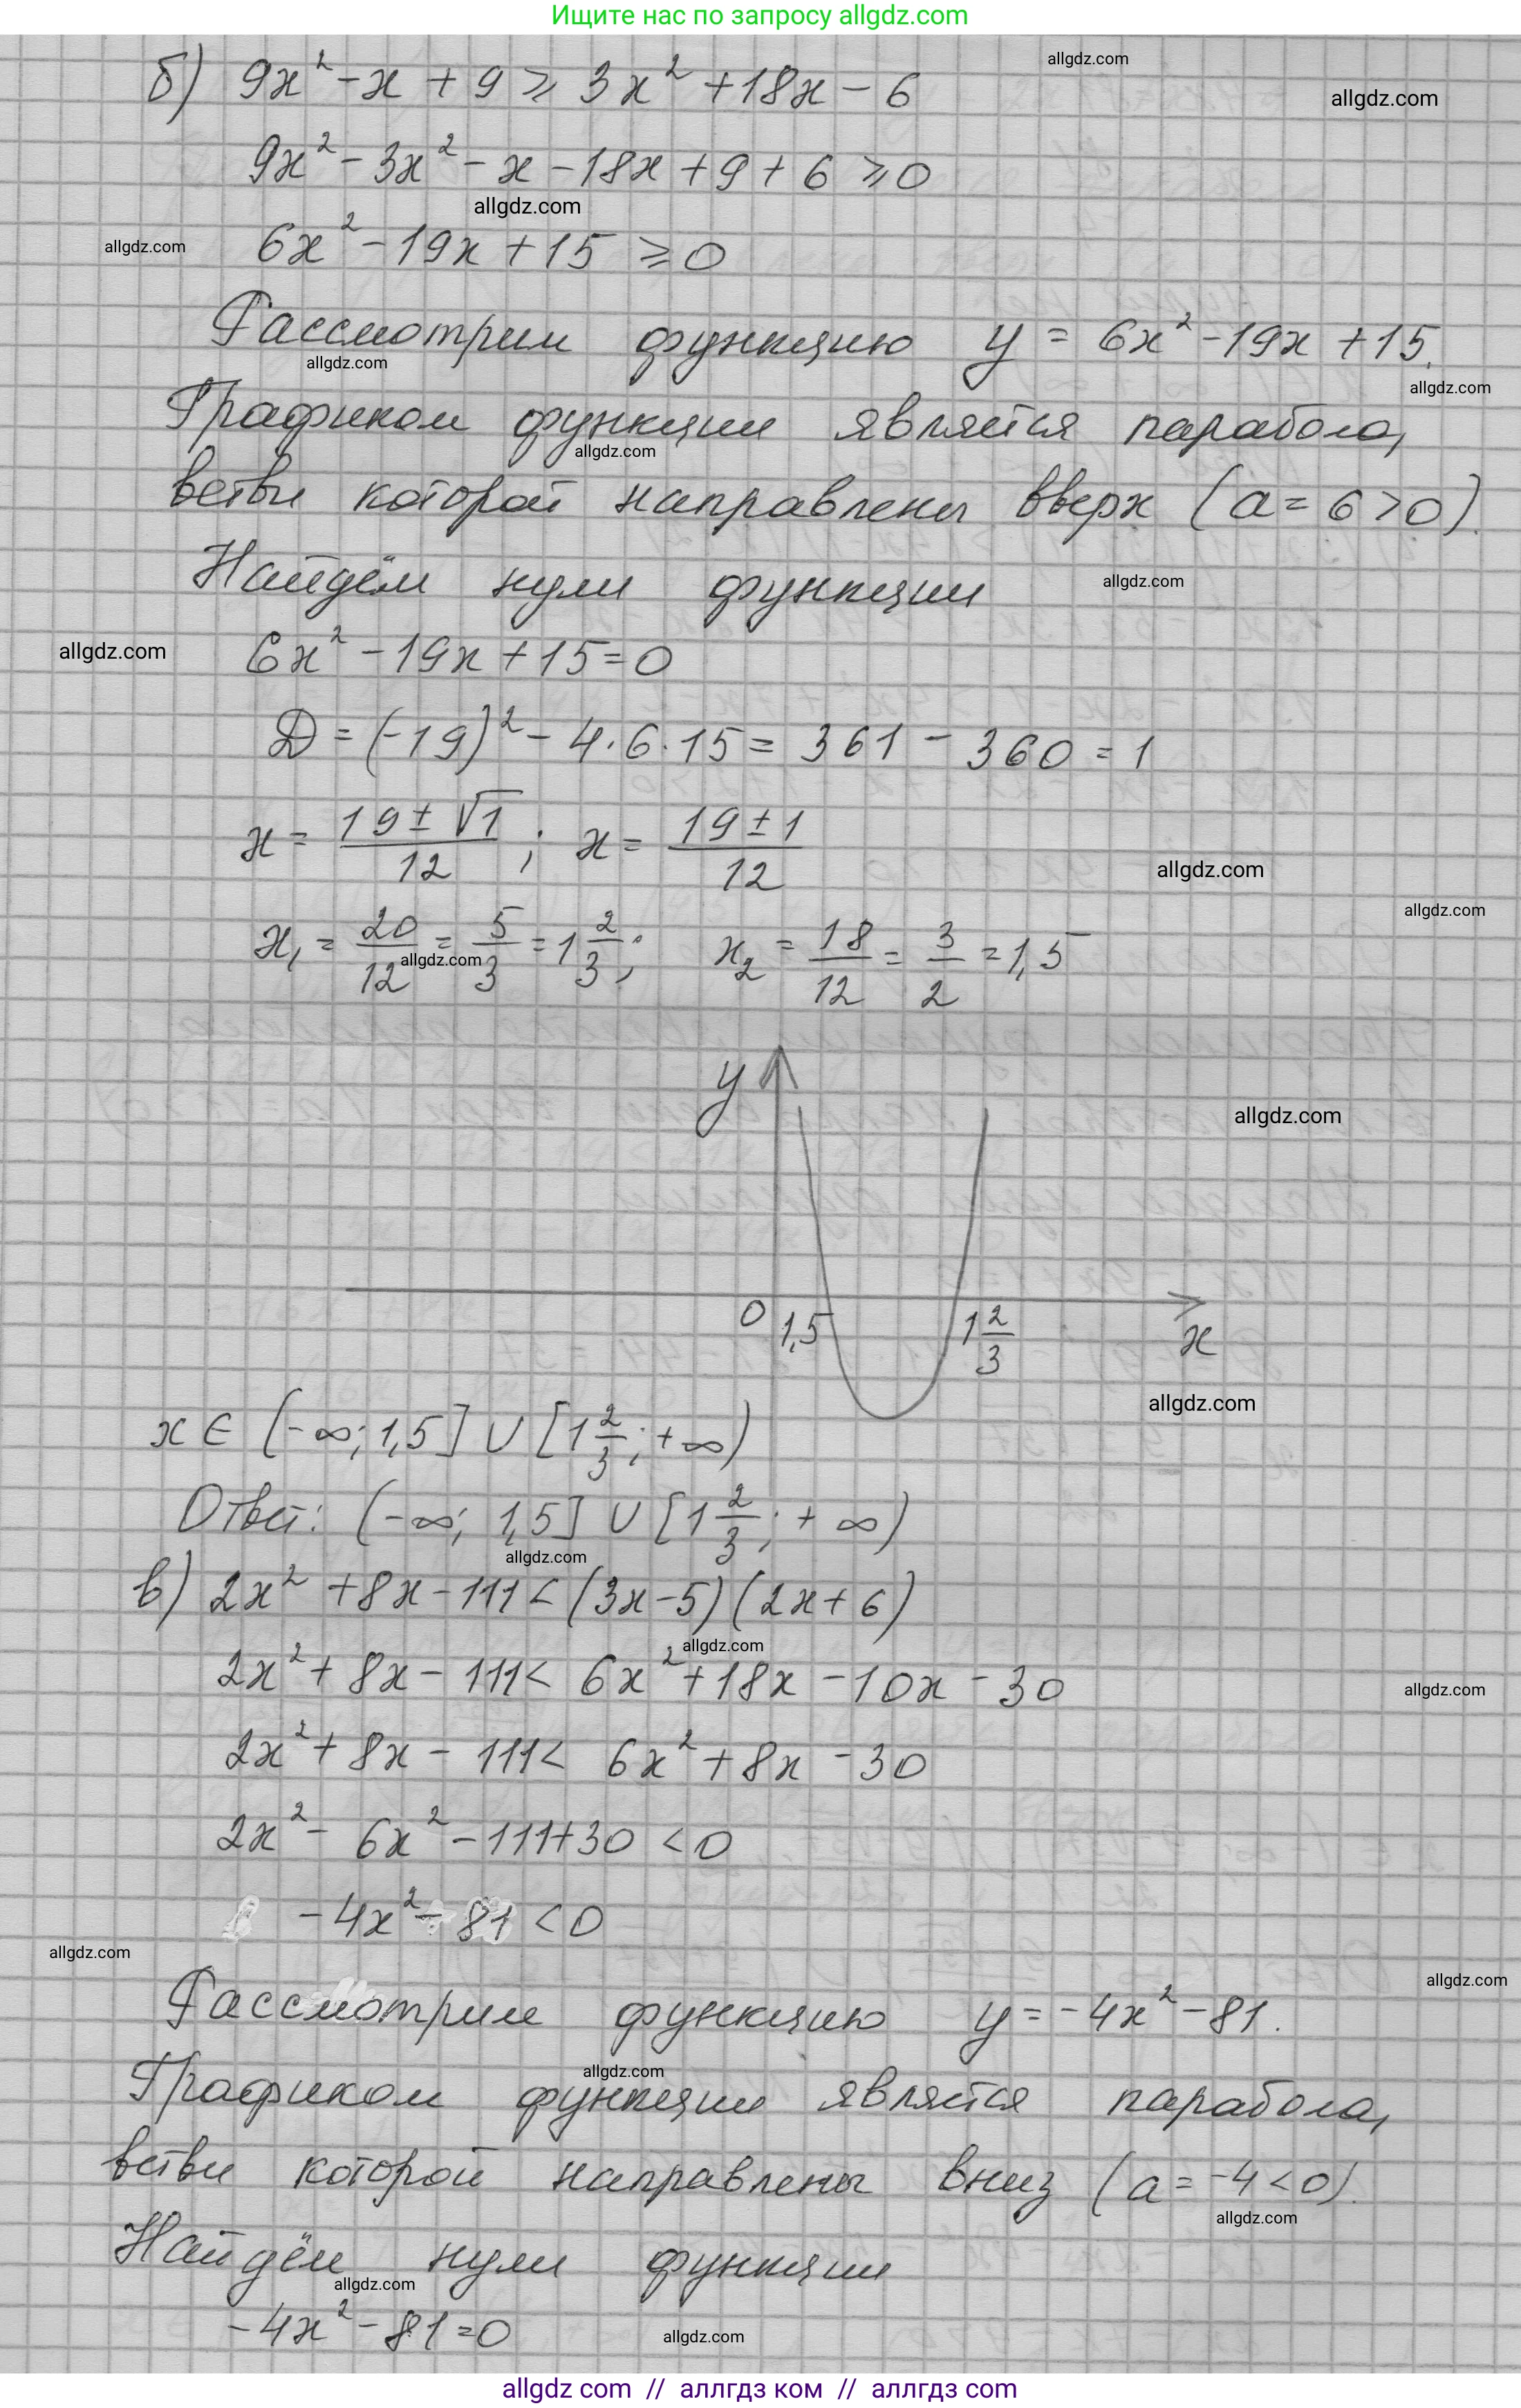 Ищите нас по запросу allgdz.com
б) 9x² - x + 9 ⩾ 3x² + 18x - 6
allgdz.com
allgdz.com
9x² - 3x² - x - 18x + 9 + 6 ⩾ 0
allgdz.com
allgdz.com
6x² - 19x + 15 ⩾ 0
Рассмотрим функцию y = 6x² - 19x + 15.
allgdz.com
allgdz.com
Графиком функции является парабола,
allgdz.com
ветви которой направлены вверх (a = 6 > 0).
Найдём нули функции
allgdz.com
allgdz.com
6x² - 19x + 15 = 0
D = (-19)² - 4·6·15 = 361 - 360 = 1
x = (19 ± √1)/12 ; x = (19 ± 1)/12
allgdz.com
allgdz.com
x₁ = 20/12 = 5/3 = 1 2/3 ; x₂ = 18/12 = 3/2 = 1,5
allgdz.com
y
allgdz.com
0 1,5 1 2/3 x
allgdz.com
x ∈ (-∞; 1,5] ∪ [1 2/3 ; +∞)
Ответ: (-∞; 1,5] ∪ [1 2/3 ; +∞)
allgdz.com
в) 2x² + 8x - 111 < (3x - 5)(2x + 6)
allgdz.com
2x² + 8x - 111 < 6x² + 18x - 10x - 30
allgdz.com
2x² + 8x - 111 < 6x² + 8x - 30
2x² - 6x² - 111 + 30 < 0
-4x² - 81 < 0
allgdz.com
allgdz.com
Рассмотрим функцию y = -4x² - 81.
allgdz.com
Графиком функции является парабола,
ветви которой направлены вниз (a = -4 < 0).
allgdz.com
Найдём нули функции
allgdz.com
-4x² - 81 = 0
allgdz.com
allgdz com // аллгдз ком // аллгдз com